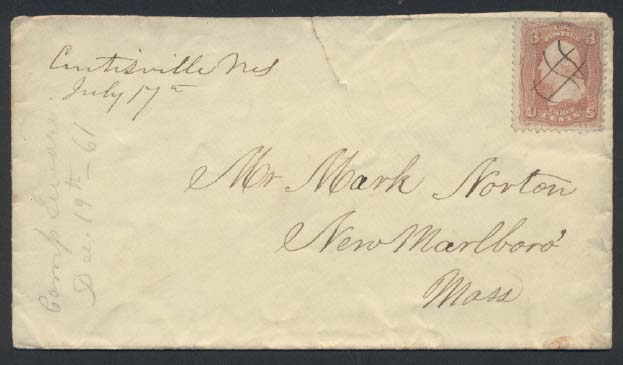 Curtisville Ms
July 17th
3 U.S. POSTAGE 3
U THREE CENTS S
Mr Mark Norton
New Marlboro'
Mass
Camp
Dec. 19th - 61